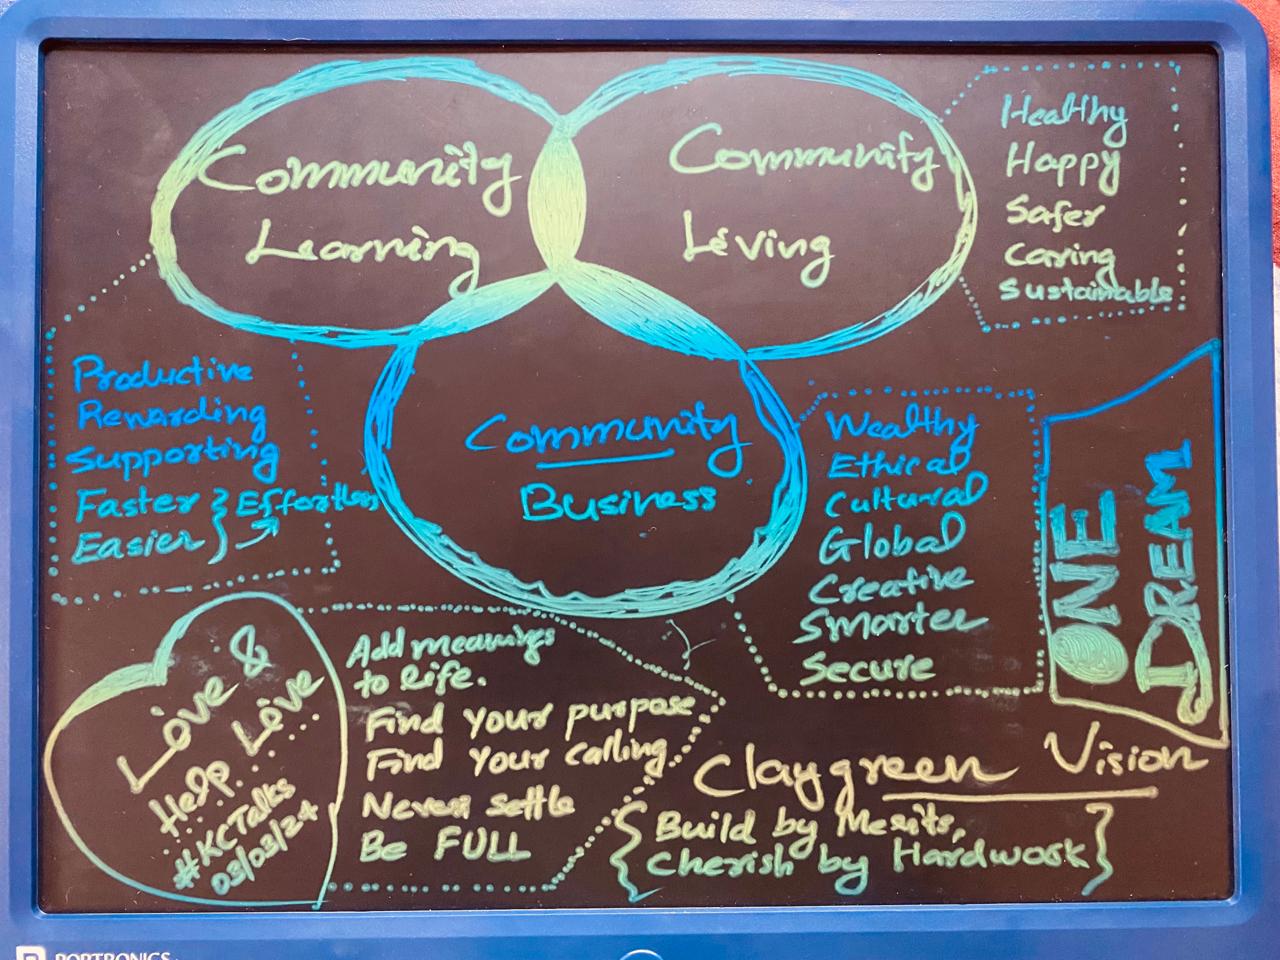 Community
Learning
Community
Living
Healthy
Happy
Safer
Caring
Sustainable
Productive
Rewarding
Supporting
Faster } Effortless
Easier
Community
Business
Wealthy
Ethical
Cultural
Global
Creative
Smarter
Secure
ONE
DREAM
Live &
Help Live
#KCTalks
03/03/24
Add meanings
to life.
Find your purpose
Find your calling
Never settle
Be FULL
Claygreen Vision
{ Build by Merits,
Cherish by Hardwork }
PORTRONICS